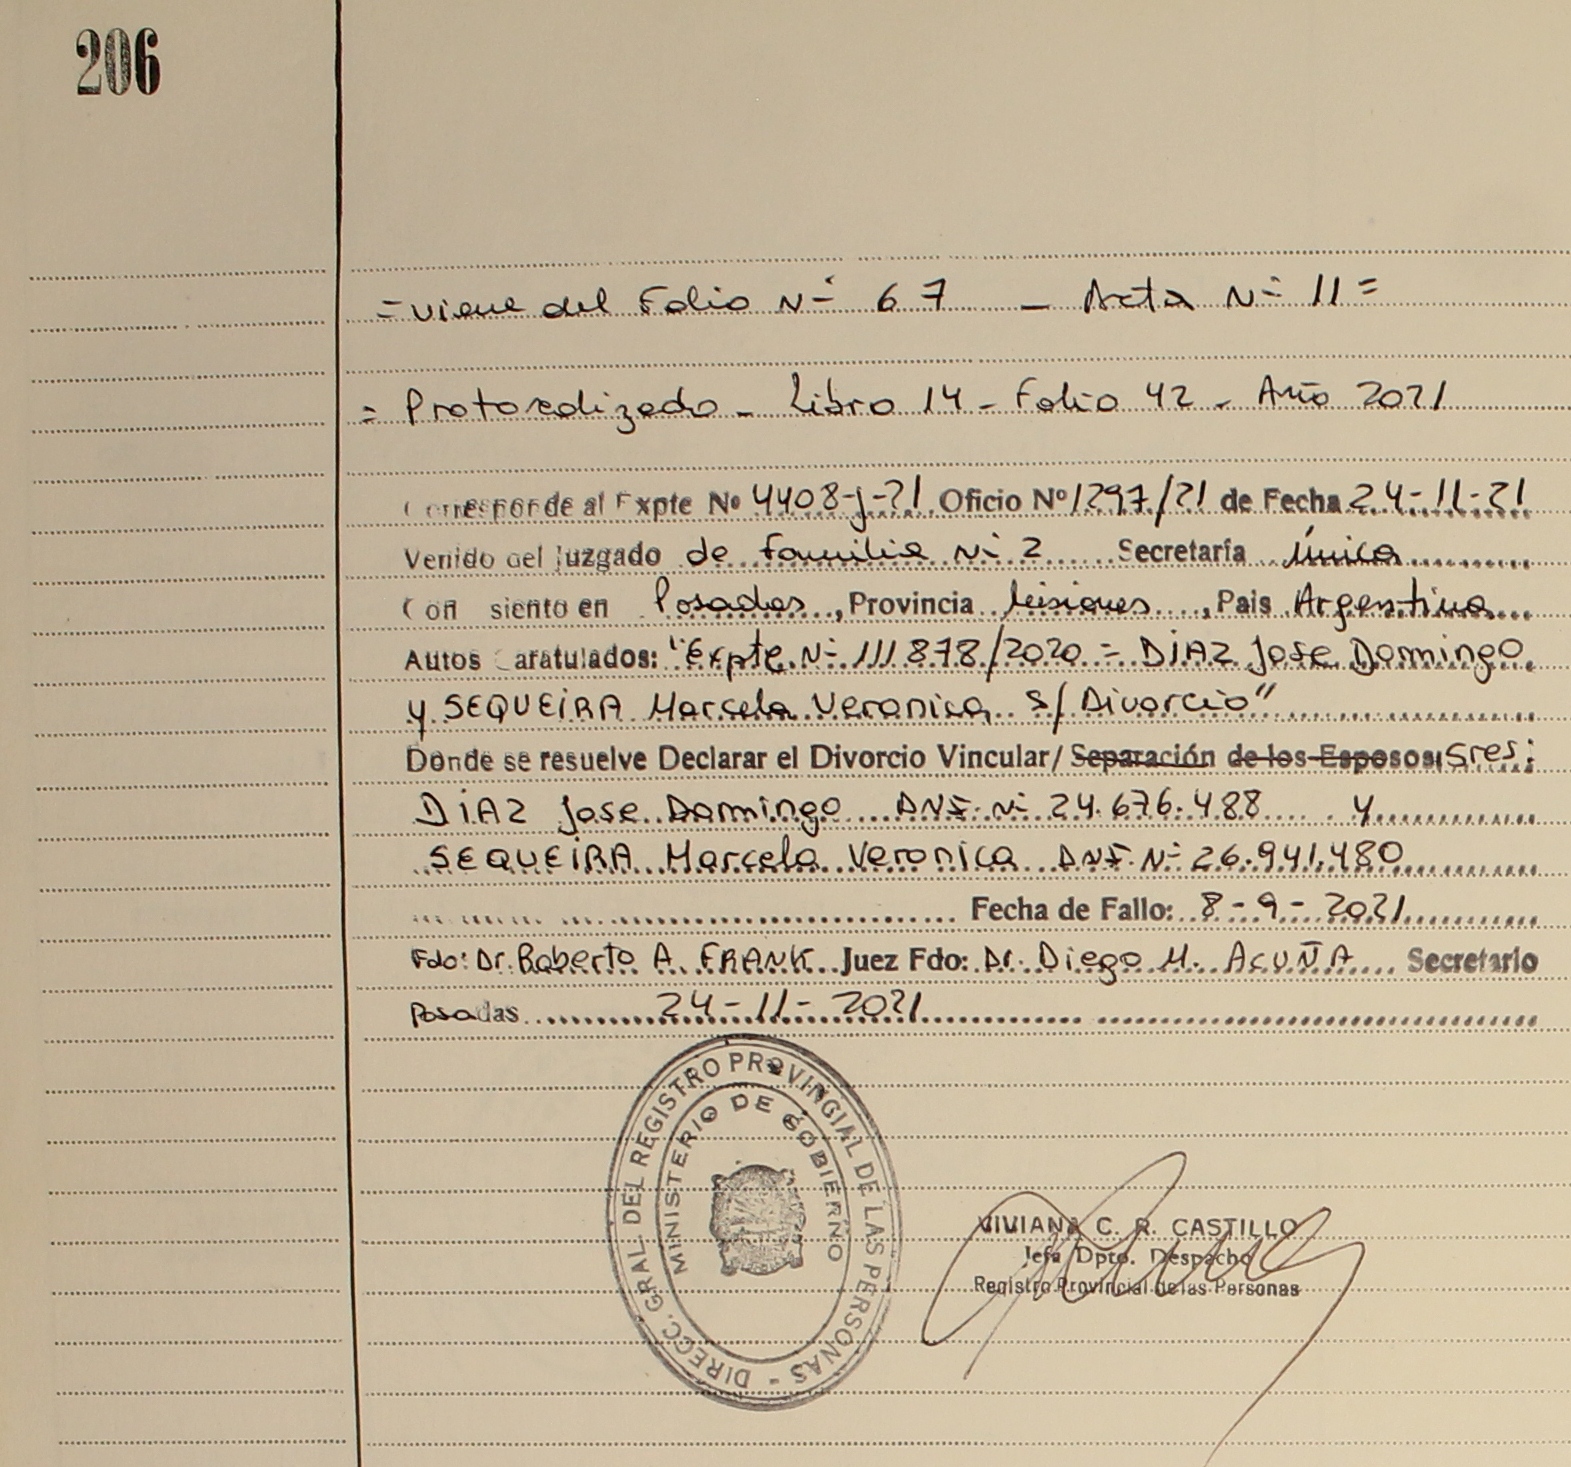 206
= viene del Folio Nº 67 - Acta Nº 11 =
= Protocolizado - Libro 14 - Folio 42 - Año 2021
Corresponde al Expte Nº 4408-J-21 Oficio Nº 1297/21 de Fecha 24-11-21
Venido del Juzgado de Familia Nº 2 Secretaría Única
Con siento en Posadas, Provincia Misiones, Pais Argentina
Autos Caratulados: "Expte. Nº 111878/2020 = DIAZ Jose Domingo
y SEQUEIRA Marcela Veronica s/ Divorcio"
Donde se resuelve Declarar el Divorcio Vincular/ Separación de los Esposos: Sres:
DIAZ Jose Domingo DNI Nº 24.676.488 y
SEQUEIRA Marcela Veronica DNI Nº 26.941.480
Fecha de Fallo: 8-9-2021
Fdo: Dr. Roberto A. FRANK Juez Fdo: Dr. Diego M. ACUÑA Secretario
Posadas 24-11-2021
DIRECC. GRAL. DEL REGISTRO PROVINCIAL DE LAS PERSONAS -
MINISTERIO DE GOBIERNO
VIVIANA C. R. CASTILLO
Jefa Dpto. Despacho
Registro Provincial de las Personas